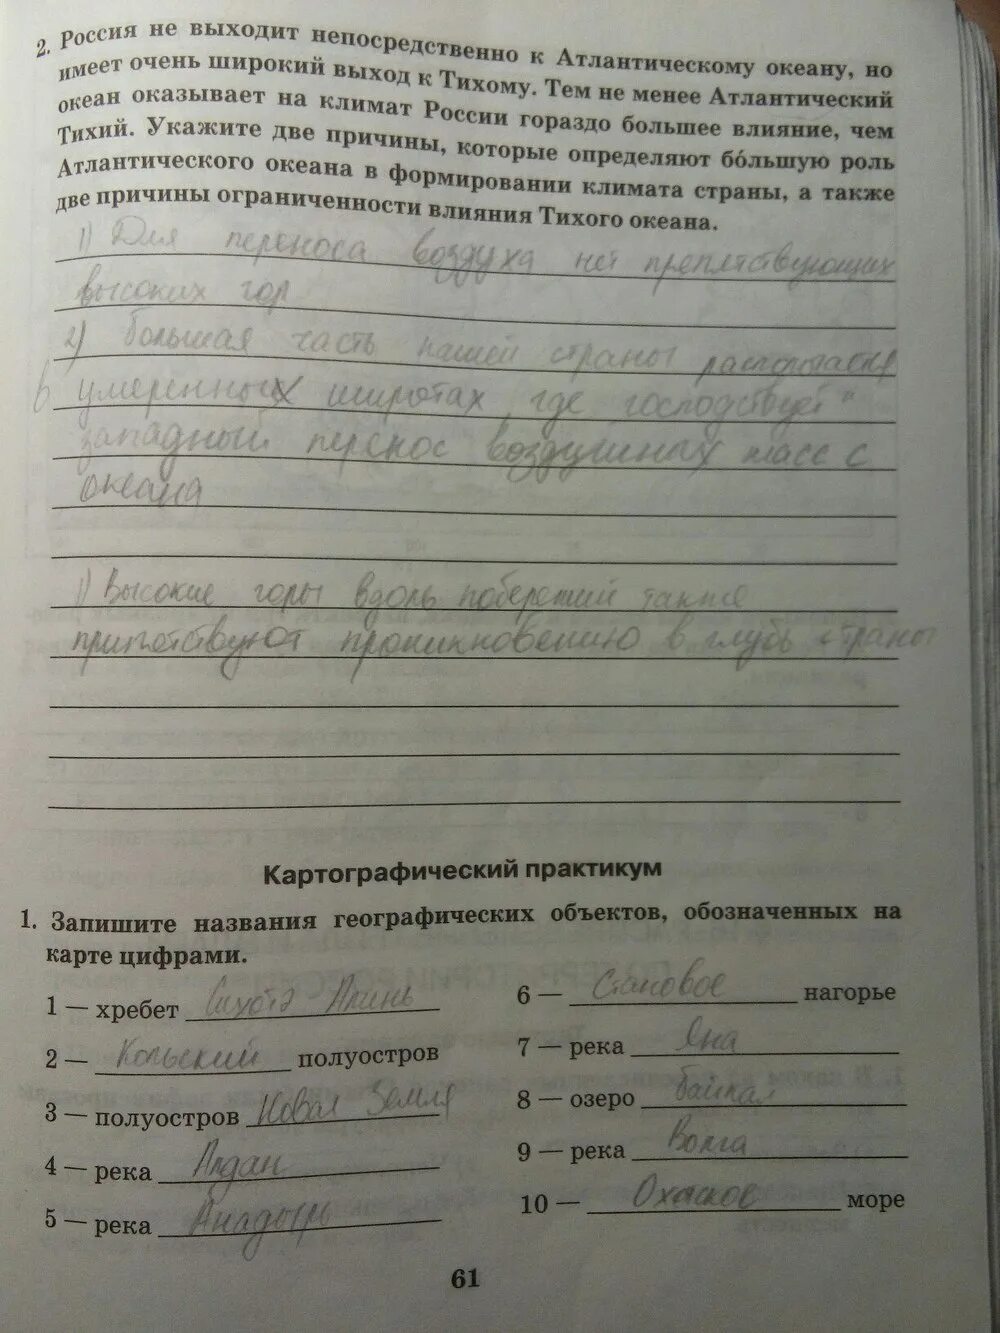 2. Россия не выходит непосредственно к Атлантическому океану, но
имеет очень широкий выход к Тихому. Тем не менее Атлантический
океан оказывает на климат России гораздо большее влияние, чем
Тихий. Укажите две причины, которые определяют бо́льшую роль
Атлантического океана в формировании климата страны, а также
две причины ограниченности влияния Тихого океана.
1) Для переноса воздуха нет препятствующих
высоких гор
2) Большая часть нашей страны располагается
в умеренных широтах, где господствует
западный перенос воздушных масс с
океана
1) Высокие горы вдоль побережий также
припятствуют проникновению в глубь страны
Картографический практикум
1. Запишите названия географических объектов, обозначенных на
карте цифрами.
1 — хребет Сихотэ Алинь
2 — Кольский полуостров
3 — полуостров Новая Земля
4 — река Алдан
5 — река Анадырь
6 — Становое нагорье
7 — река Яна
8 — озеро байкал
9 — река Волга
10 — Охотское море
61